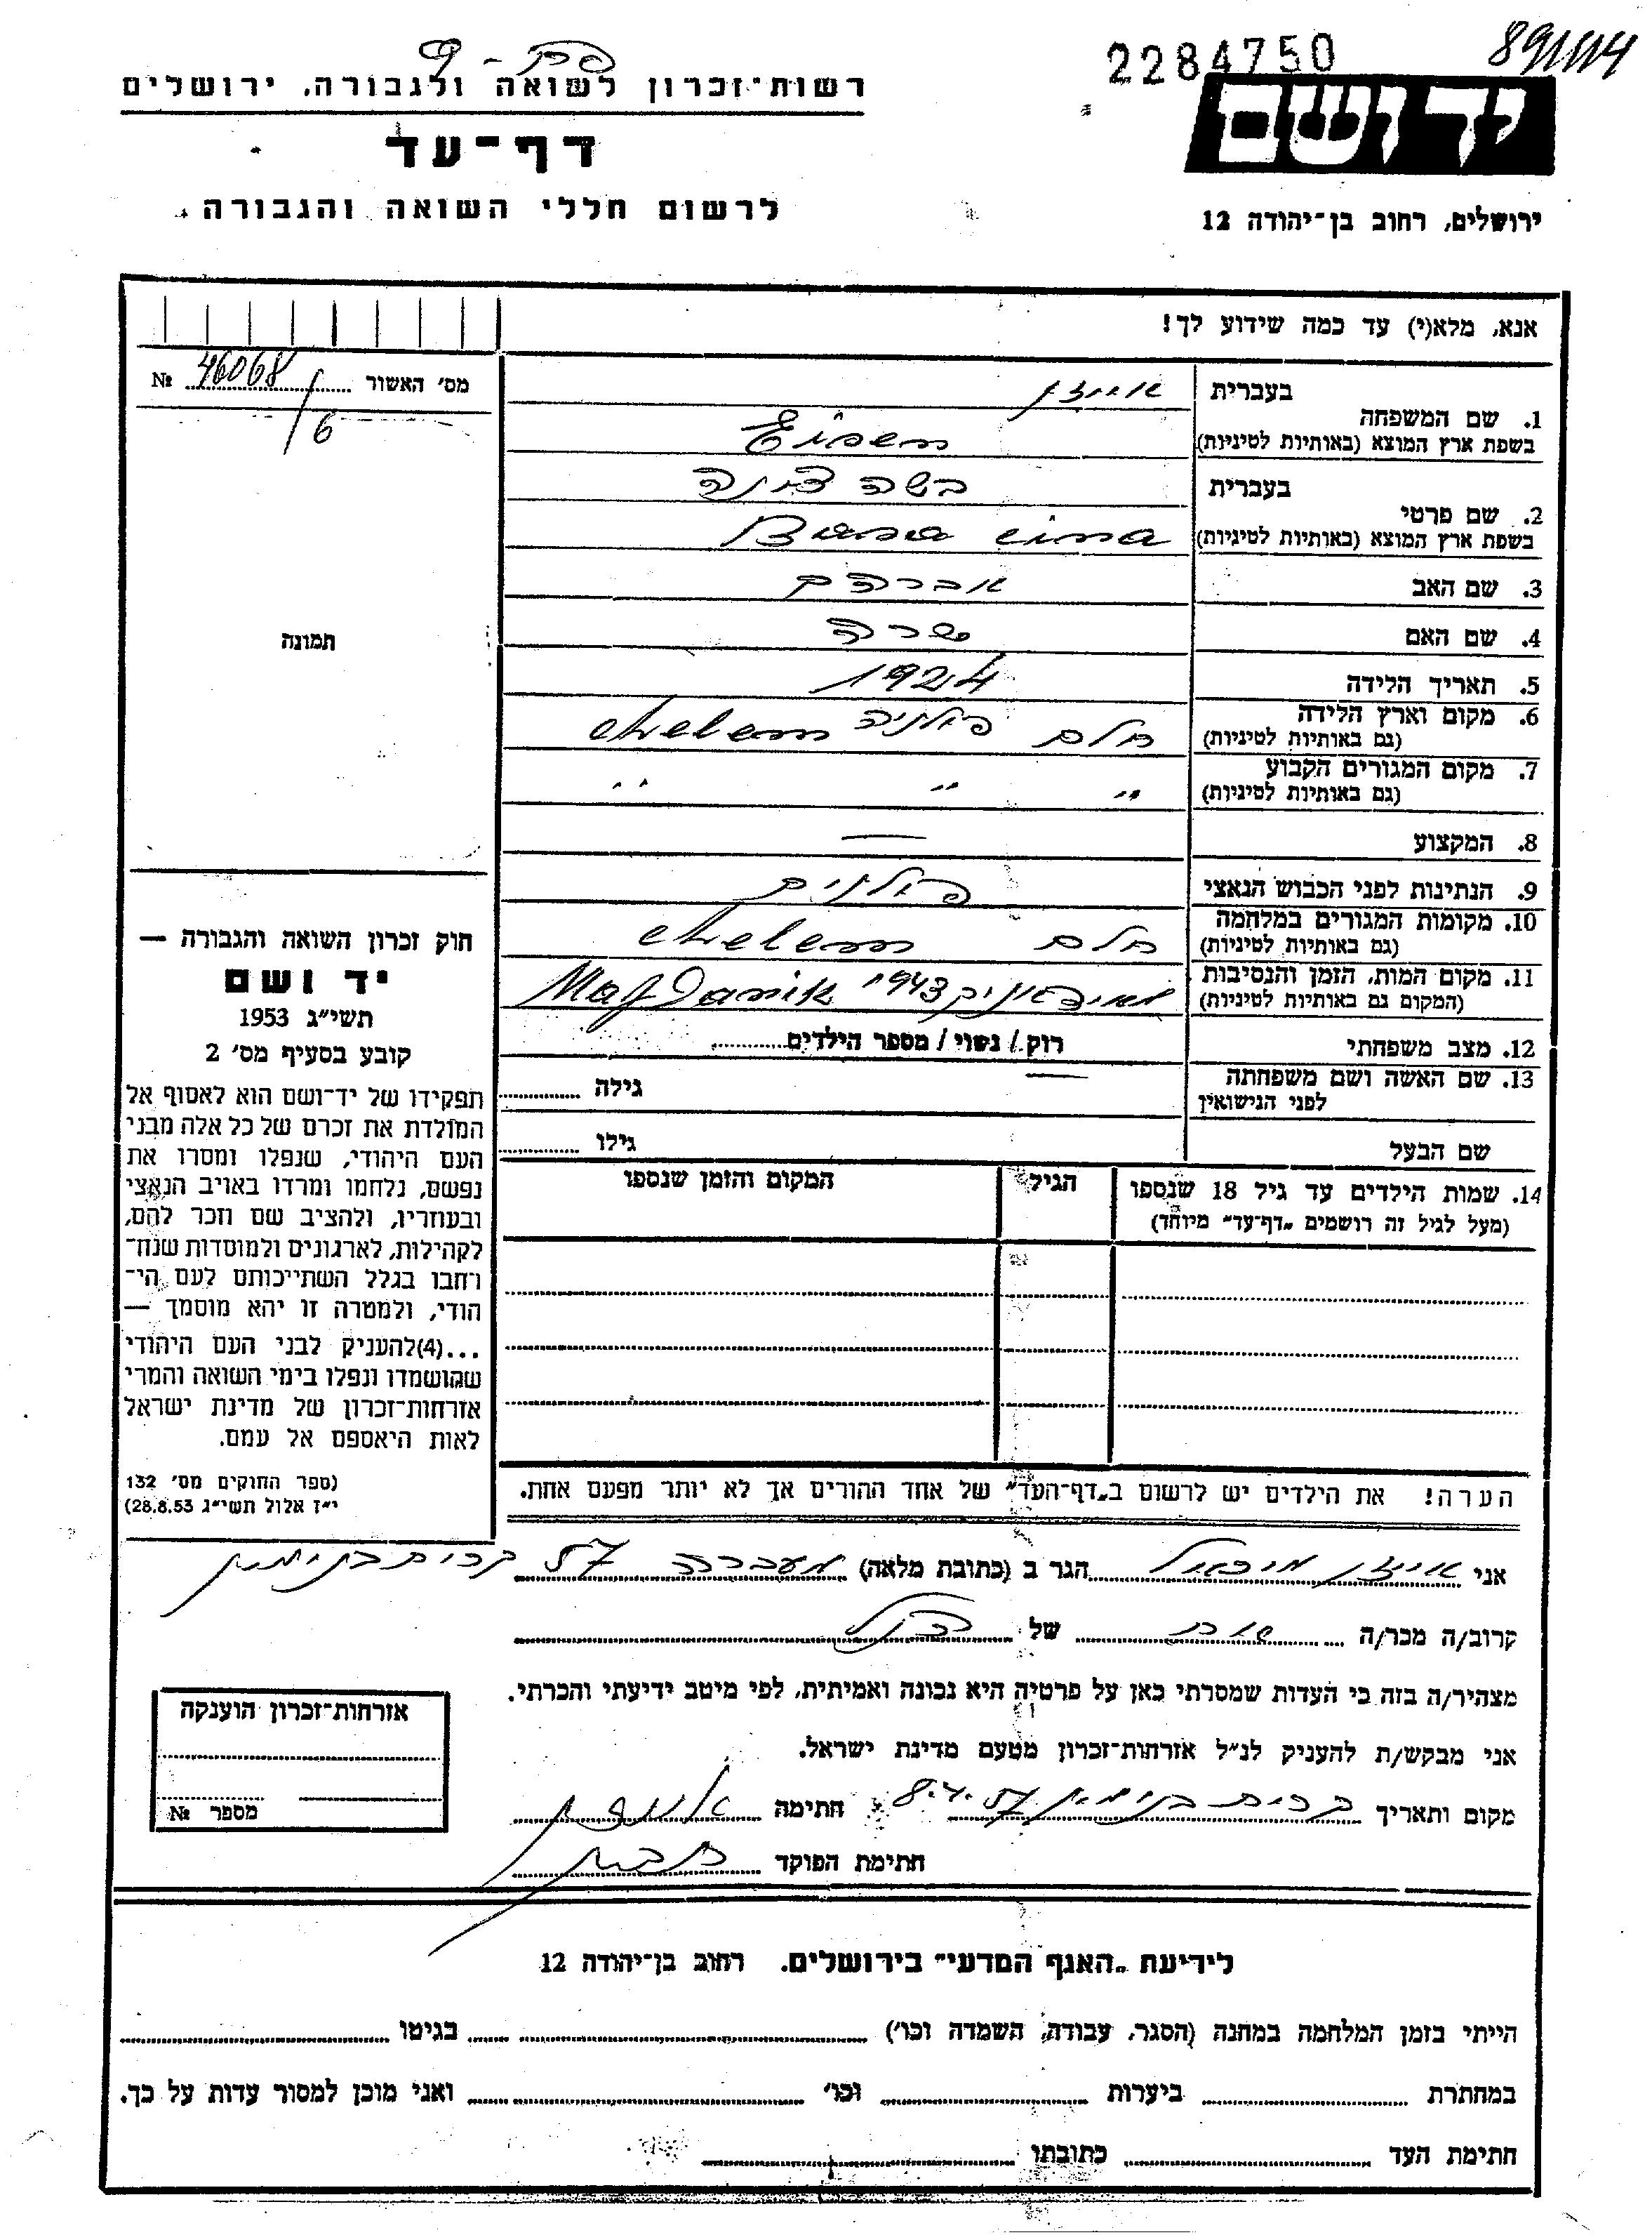 2284750
רשות־זכרון לשואה ולגבורה, ירושלים
דף־עד
לרשום חללי השואה והגבורה
יד ושם
ירושלים, רחוב בן־יהודה 12
אנא, מלא(י) עד כמה שידוע לך!
מס׳ האשור 46068 №
6
תמונה
בעברית אייזן
1. שם המשפחה
בשפת ארץ המוצא (באותיות לטיניות) Eisen
בעברית בשה צינה
2. שם פרטי
בשפת ארץ המוצא (באותיות לטיניות) Basa cina
3. שם האב אברהם
4. שם האם שרה
5. תאריך הלידה 1924
6. מקום וארץ הלידה חלם פולניה chelem
(גם באותיות לטיניות)
7. מקום המגורים הקבוע " " "
(גם באותיות לטיניות)
8. המקצוע —
9. הנתינות לפני הכבוש הנאצי פולנית
10. מקומות המגורים במלחמה חלם chelem
(גם באותיות לטיניות)
11. מקום המות, הזמן והנסיבות מאידניק 1943 Majdanik
(המקום גם באותיות לטיניות)
12. מצב משפחתי רוק / נשוי / מספר הילדים
13. שם האשה ושם משפחתה גילה
לפני הנישואין
שם הבעל גילו
14. שמות הילדים עד גיל 18 שנספו הגיל המקום והזמן שנספו
(מעל לגיל זה רושמים „דף־עד״ מיוחד)
הערה! את הילדים יש לרשום ב„דף־העד״ של אחד ההורים אך לא יותר מפעם אחת.
חוק זכרון השואה והגבורה —
יד ושם
תשי״ג 1953
קובע בסעיף מס׳ 2
תפקידו של יד־ושם הוא לאסוף אל
המולדת את זכרם של כל אלה מבני
העם היהודי, שנפלו ומסרו את
נפשם, נלחמו ומרדו באויב הנאצי
ובעוזריו, ולהציב שם וזכר להם,
לקהילות, לארגונים ולמוסדות שנח־
רחבו בגלל השתייכותם לעם הי־
הודי, ולמטרה זו יהא מוסמך —
...(4)להעניק לבני העם היהודי
שהושמדו ונפלו בימי השואה והמרי
אזרחות־זכרון של מדינת ישראל
לאות היאספם אל עמם.
(ספר החוקים מס׳ 132
י״ז אלול תשי״ג 28.8.53)
אני אייזן מיכאל הגר ב (כתובת מלאה) מעברה 57 קרית בנימין
קרוב/ה מכר/ה של הנ״ל
מצהיר/ה בזה כי העדות שמסרתי כאן על פרטיה היא נכונה ואמיתית, לפי מיטב ידיעתי והכרתי.
אני מבקש/ת להעניק לנ״ל אזרחות־זכרון מטעם מדינת ישראל.
מקום ותאריך קרית בנימין 8.4.57 חתימה
חתימת הפוקד
אזרחות־זכרון הוענקה
מספר №
לידיעת „האגף המדעי״ בירושלים. רחוב בן־יהודה 12
הייתי בזמן המלחמה במחנה (הסגר, עבודה, השמדה וכו׳) בגיטו
במחתרת ביערות וכו׳ ואני מוכן למסור עדות על כך.
חתימת העד כתובתו